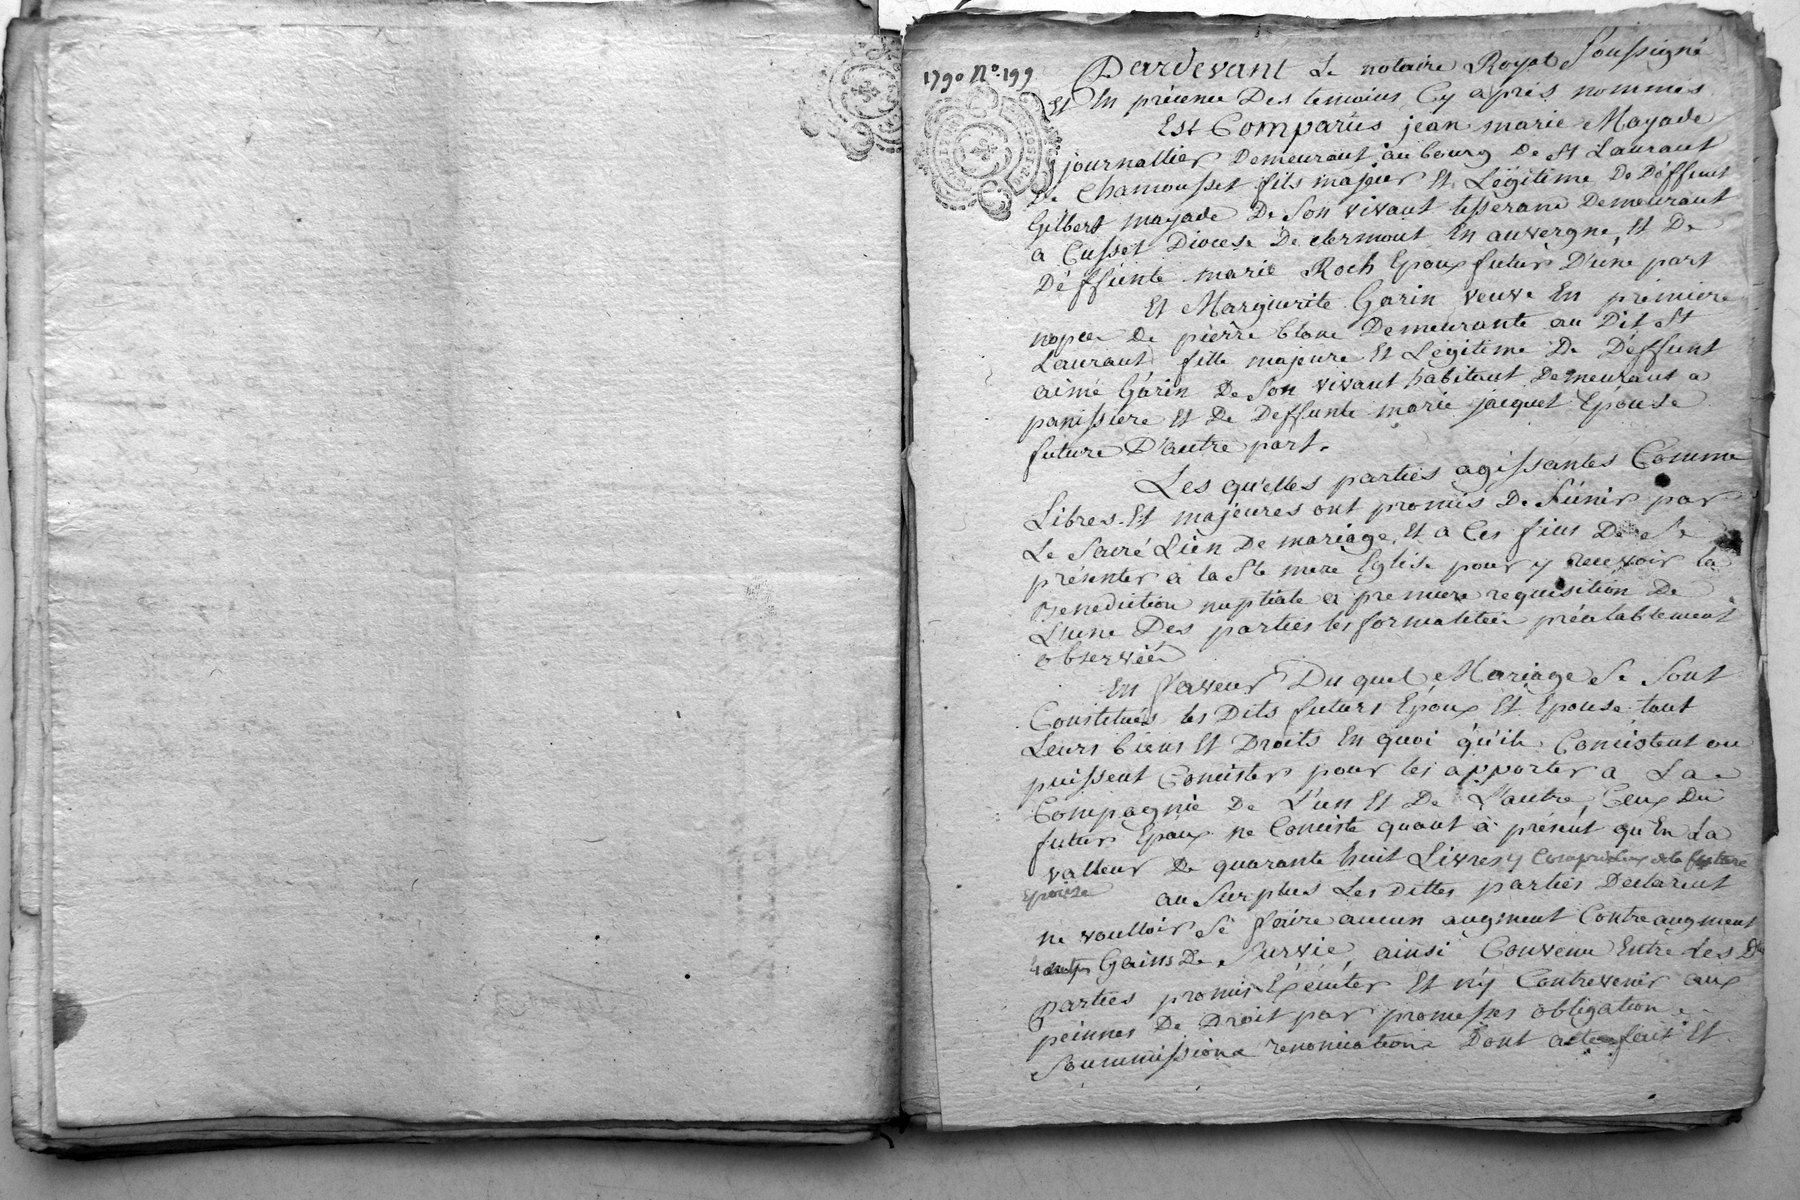 1790 N°. 199
Pardevant Le notaire Royal Soussigné
Et En présence Des temoins Cy après nommés
Est Comparus jean marie Mayade
journallier Demeurant au bourg De St Laurant
De Chamousset fils majeur Et Légitime De Déffunt
Gilbert mayade De Son vivant tisserand Demeurant
a Cusset Diocese De clermont En auvergne, Et De
Déffunte marie Roch Epoux futur D'une part
Et Marguerite Garin veuve En premiere
nopce De pierre blanc Demeurante au Dit St
Laurant fille majeure Et Légitime De Déffunt
aimé Garin De Son vivant habitant Demeurant a
panissiere Et De Deffunte marie jacquet Epouse
future D'autre part.
Les qu'elles parties agissantes Comme
Libres Et majeures ont promis De S'unir par
Le Sacré Lien De mariage, Et a Ces fins De Se
présenter a la Ste mere Eglise pour y recevoir la
Benediction nuptiale a premiere requisition De
L'une Des parties les formalitées préalablement
observéés
En faveur Du quel Mariage Se Sont
Constitués les Dits futurs Epoux Et Epouse tout
Leurs biens Et Droits En quoi qu'ils Consistent ou
puissent Consister pour les apporter a La
Compagnie De L'un Et De L'autre, Ceux Du
futur Epoux ne Consiste quant à présent qu'En La
valleur De quarante huit Livres y Compris Ceux de la future
Epouse
au Surplus Les Dittes parties Declarent
ne voulloir Se faire aucun augment Contre augment
Gains De Survie, ainsi Convenu Entre Les Dtes
parties promis Exécuter Et n'y Contrevenir aux
peinnes De Droit par promesses obligation
Soummissions renonciations Dont acte fait Et